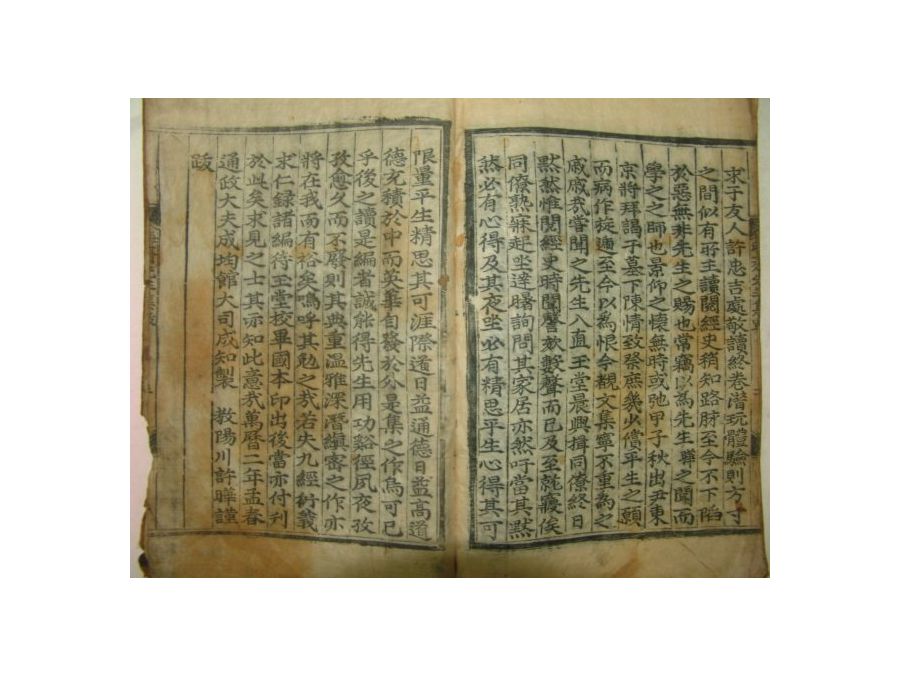 求于友人許忠吉處敬讀終卷潛玩體驗則方寸
之間似有所主讀閱經史稍知路脉至今不下陷
於惡無非先生之賜也常竊以爲先生聯之聞而
學之之師也景仰之懷無時或弛甲子秋出尹東
京將拜謁于墓下陳情致祭庶幾少償平生之願
而病作旋遞至今以爲恨今覩文集寧不重爲之
戚戚哉嘗聞之先生入直玉堂晨興揖同僚終日
默然惟閱經史時聞謦欬數聲而已及至就寢俟
同僚熟寐起坐達曙詢問其家居亦然吁當其默
然必有心得及其夜坐必有精思平生心得其可
限量平生精思其可涯際道日益通德日益高道
德充積於中而英華自發於外是集之作烏可已
乎後之讀是編者誠能得先生用功谿徑夙夜孜
孜愈久而不廢則其典重溫雅深潛縝審之作亦
將在我而有裕矣嗚呼其勉之哉若夫九經衍義
求仁録諸編待玉堂校畢國本印出後當亦付刊
於此矣求見之士其亦知此意哉萬曆二年孟春
通政大夫成均館大司成知製 教陽川許曄謹
跋